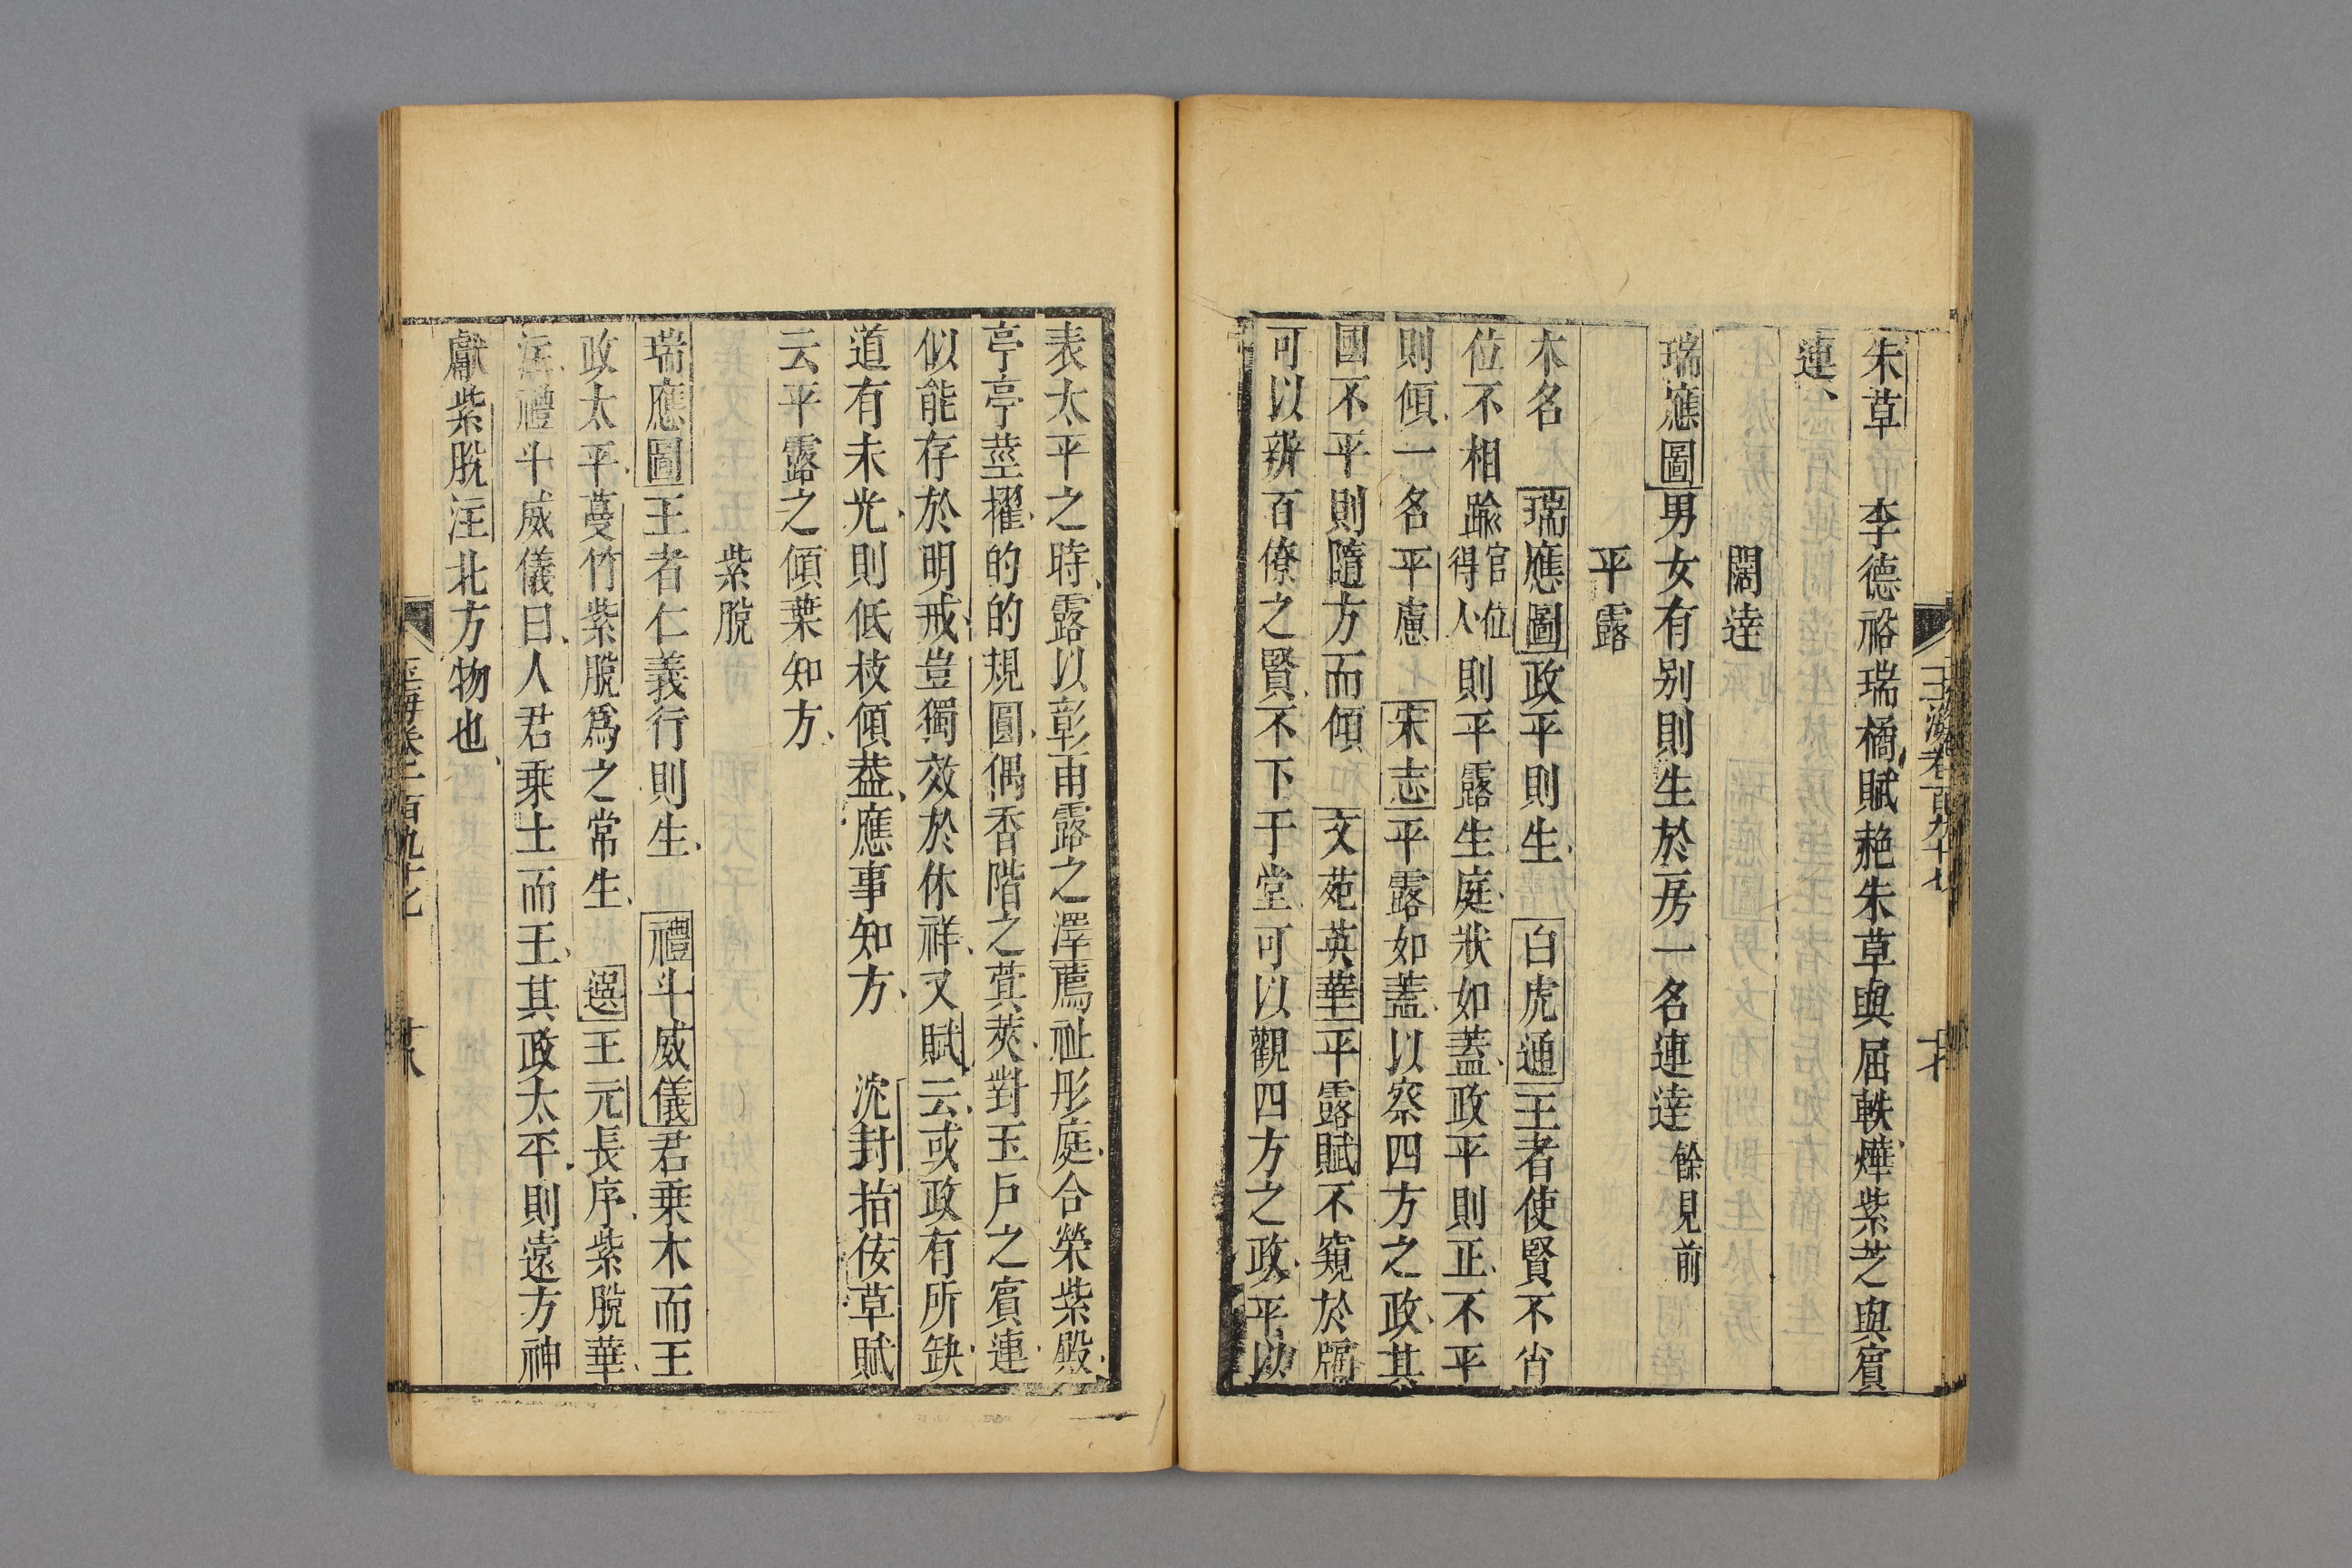 朱草 李德裕瑞橘賦赩朱草與屈軼燁紫芝與賓
連
闊達
瑞應圖男女有别則生於房一名連達餘見前
平露
木名 瑞應圖政平則生 白虎通王者使賢不肖
位不相踰官位得人則平露生庭狀如蓋政平則正不平
則傾一名平慮 宋志平露如蓋以察四方之政其
國不平則隨方而傾 文苑英華平露賦不窺於牖
可以辨百僚之賢不下于堂可以觀四方之政平以
表太平之時露以彰甫露之澤薦祉彤庭合榮紫殿
亭亭莖擢的的規圓偶香階之蓂莢對玉戸之賓連
似能存於明戒豈獨效於休祥又賦云或政有所缺
道有未光則低枝傾葢應事知方 沈封拍佞草賦
云平露之傾葉知方
紫脫
瑞應圖王者仁義行則生 禮斗威儀君乗木而王
政太平蔓竹紫脫爲之常生 選王元長序紫脫華
注禮斗威儀曰人君乗土而王其政太平則遠方神
獻紫脫注北方物也
玉海卷一百九十七